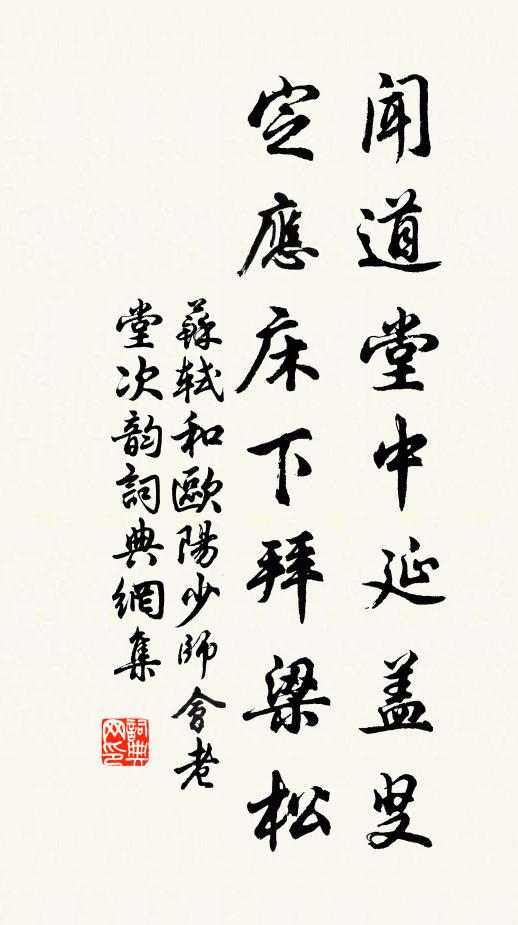 聞道堂中延盖叟
定應床下拜梁松
蘇軾和歐陽少師會老
堂次韵詞典網集
詞典網印